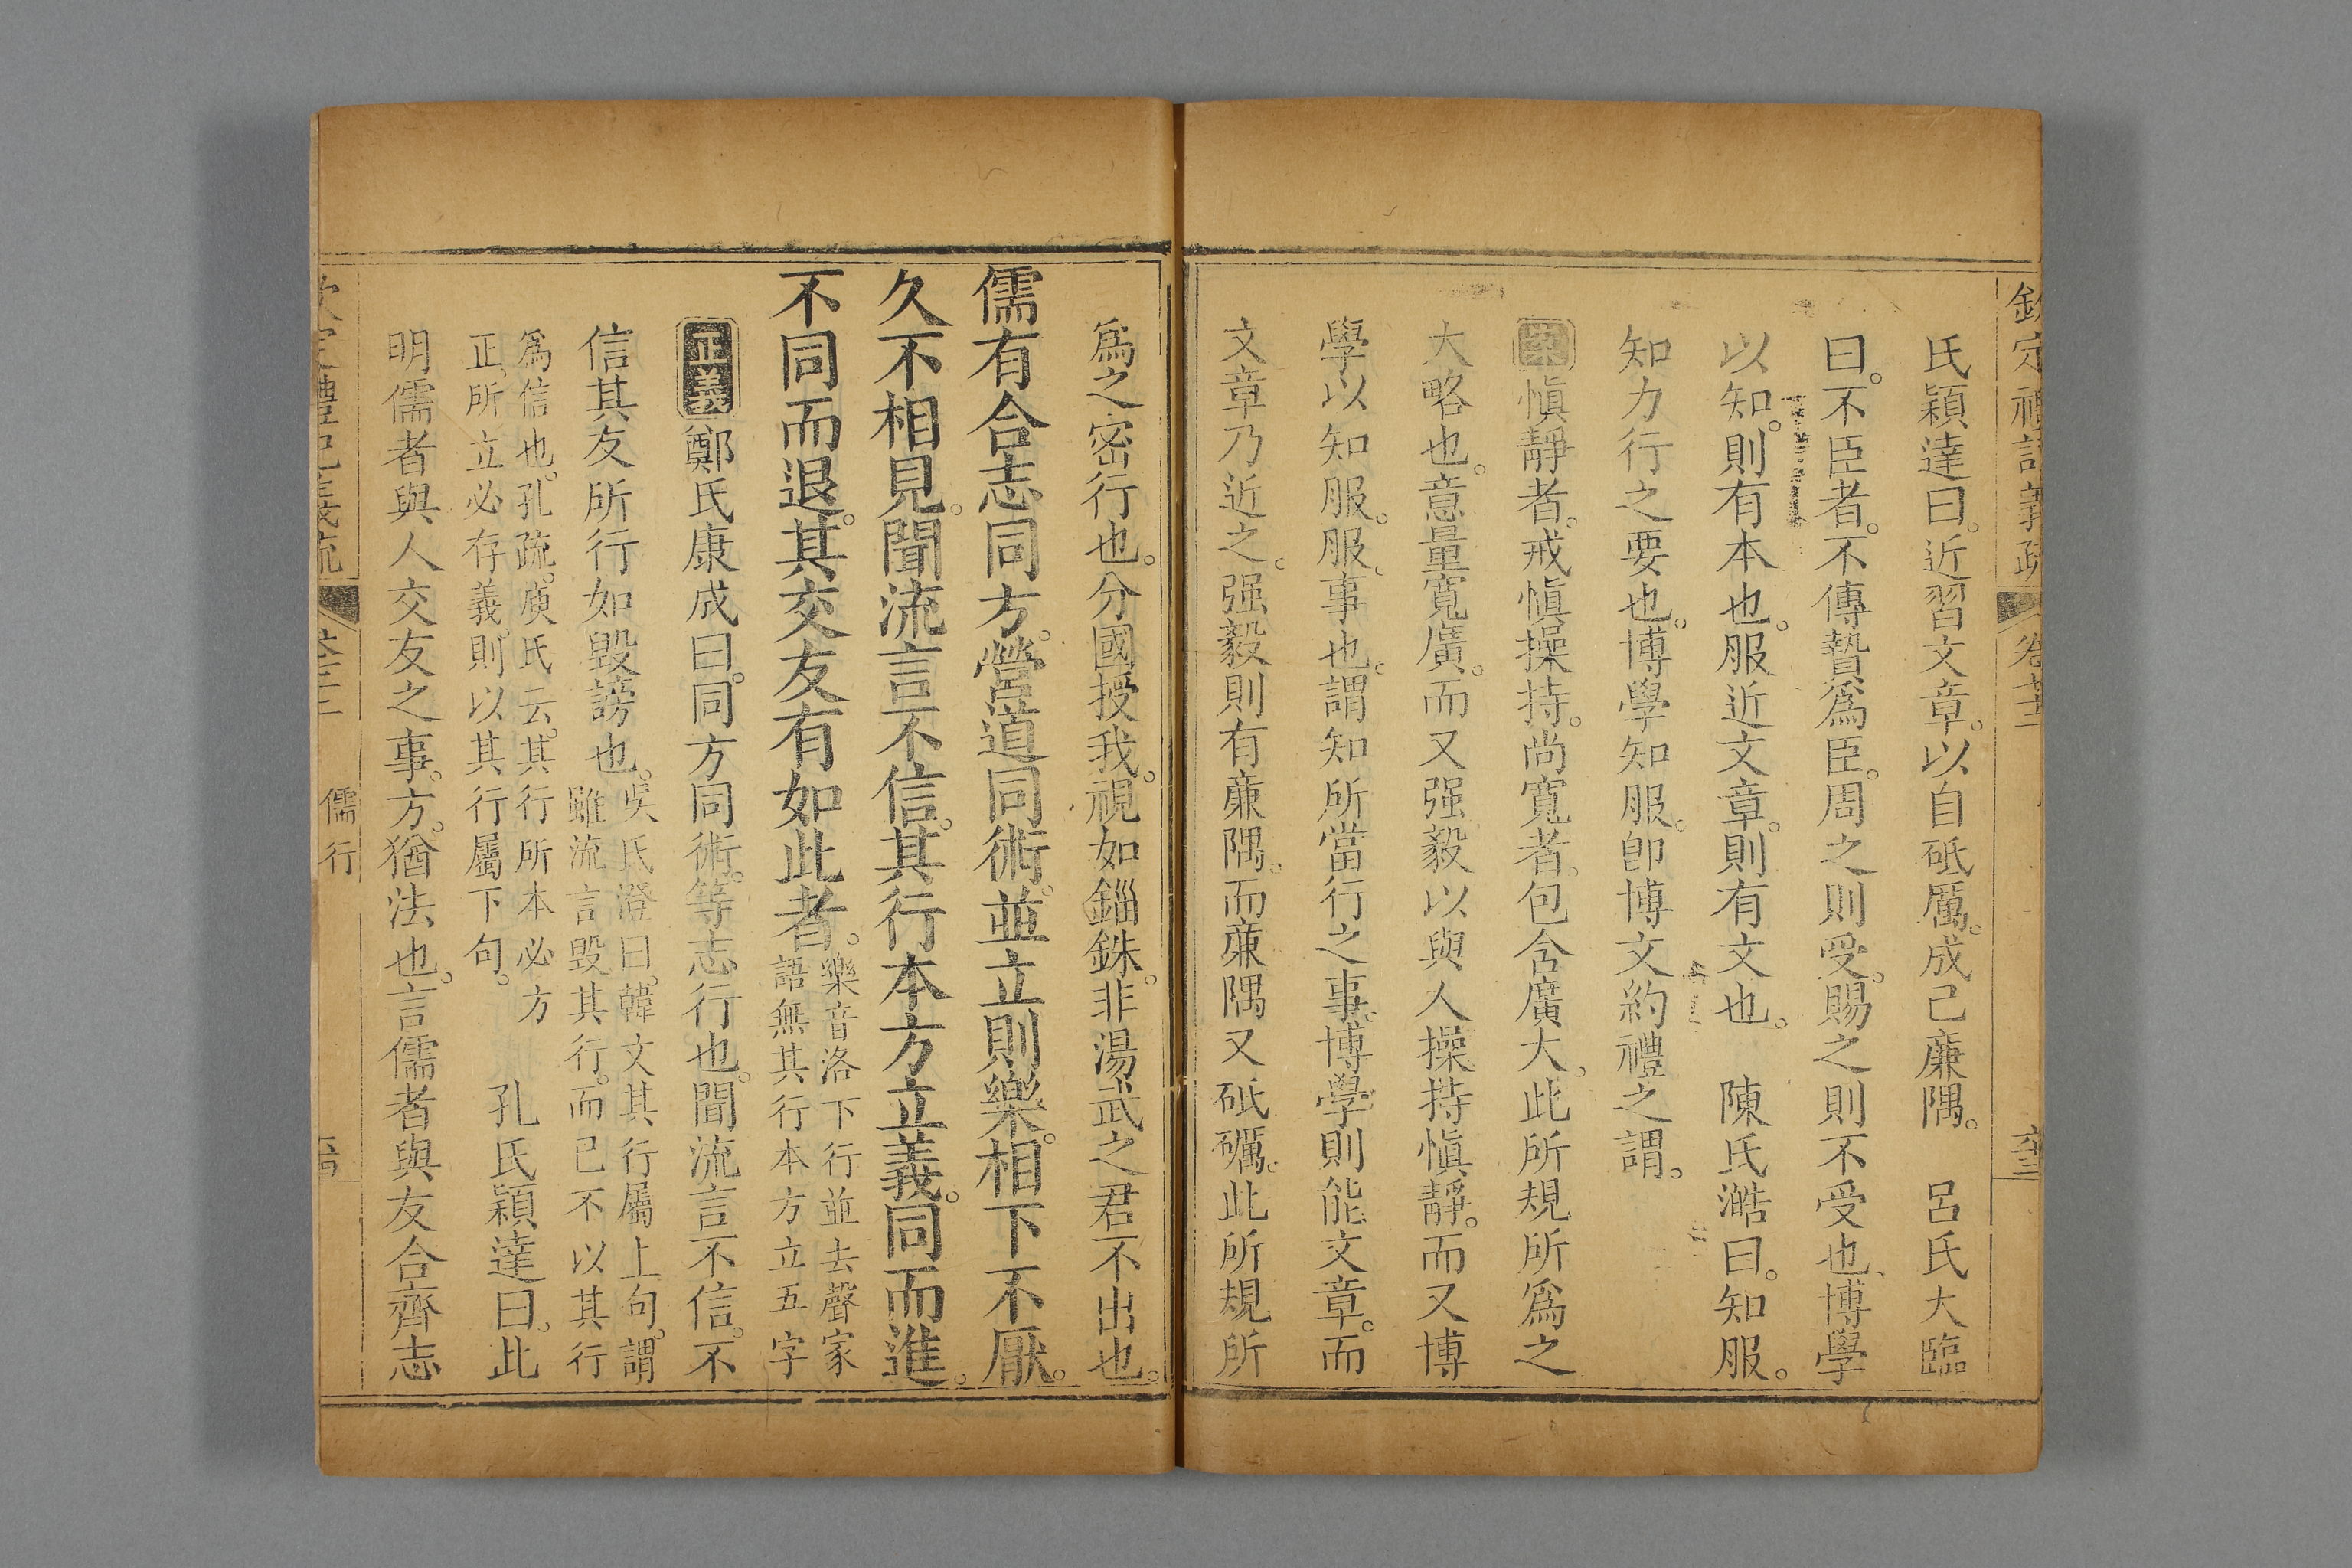 欽定禮記義疏 卷 
氏穎達曰。近習文章。以自砥厲。成己廉隅。 呂氏大臨
曰。不臣者。不傳贄爲臣。周之則受。賜之則不受也、博學
以知。則有本也。服近文章。則有文也。 陳氏澔曰。知服。
知力行之要也。博學知服。卽博文約禮之謂。
案愼靜者。戒愼操持。尚寬者。包含廣大。此所規所爲之
大略也。意量寬廣。而又强毅以與人操持愼靜。而又博
學以知服。服。事也。謂知所當行之事。博學則能文章。而
文章乃近之。强毅則有廉隅。而廉隅又砥礪。此所規所
爲之密行也。分國授我。視如錙銖。非湯武之君不出也。
儒有合志同方。營道同術。並立則樂。相下不厭。
久不相見。聞流言不信。其行本方立義。同而進。
不同而退。其交友有如此者。
樂音洛下行並去聲家
語無其行本方立五字
正義鄭氏康成曰。同方同術。等志行也。聞流言不信。不
信其友所行如毀謗也。
吳氏澄曰。韓文其行屬上句。謂
雖流言毀其行。而已不以其行
爲信也。孔疏。庾氏云。其行所本必方
正、所立必存義。則以其行屬下句。
孔氏穎達曰。此
明儒者與人交友之事。方。猶法也。言儒者與友合齊志
儒行